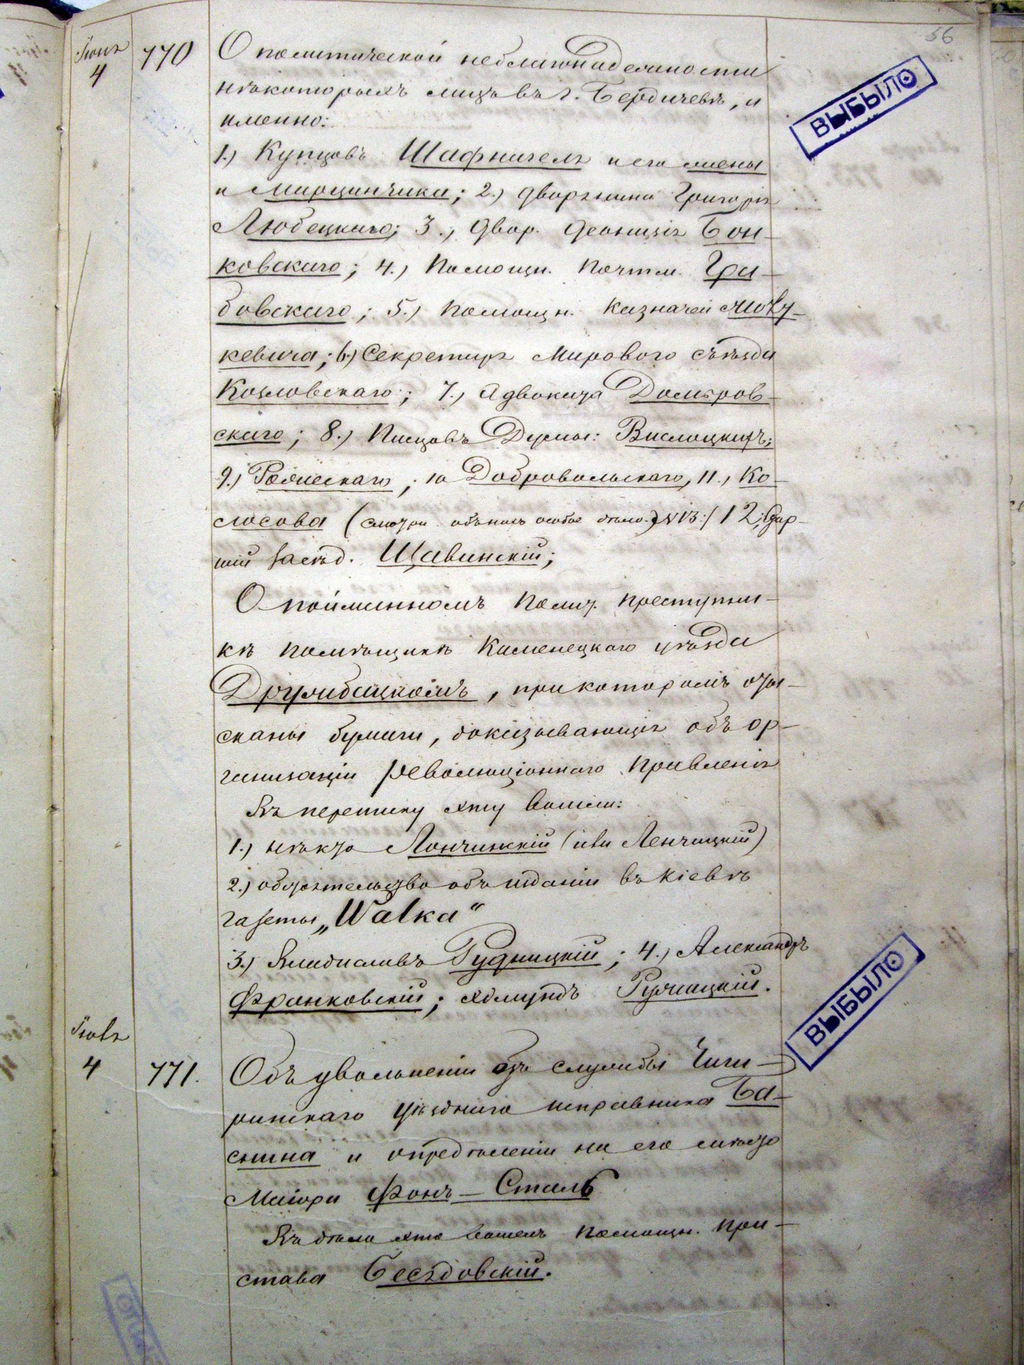 56
Іюня 4
770
О политической неблагонадежности
нѣкоторыхъ лицъ въ г. Бердичевѣ, и
именно:
ВЫБЫЛО
1.) Купцовъ Шафнагель и его жены
и Марцинчика; 2.) дворянина Григорія
Любецкаго; 3.) двор. Леонція Бон-
ковскаго; 4.) Помощн. Почтм. Гра-
бовскаго; 5.) Помощн. Казначея
кевича; 6.) Секретаря Мироваго съѣзда
Козловскаго; 7.) Адвоката Домбров-
скаго; 8.) Писцовъ Думы: Вислоцкихъ;
9.) ; 10 Добровольскаго, 11., Ко-
лосова (смотри объ немъ особое дѣло № 13:) 12,
засѣд. Щавинскій;
О пойманномъ полит. преступни-
кѣ помѣщикѣ Каменецкаго уѣзда
, при которомъ оты-
сканы бумаги, доказывающія объ ор-
ганизаціи революціоннаго правленія
Въ переписку эту вошли:
1.) нѣкто Лончинскій (или Ленчицкій)
2.) обстоятельство объ изданіи въ Кіевѣ
газеты „Walka“
3.) Владиславъ Рудницкій; 4.) Александръ
Франковскій; Эдмундъ Ружицкій.
Іюня 4
771.
ВЫБЫЛО
Объ увольненіи отъ службы Чиги-
ринскаго уѣзднаго исправника Ба-
снина и опредѣленіи на его мѣсто
Маіора Фонъ-Сталь
Въ дѣло это вошелъ помощн. при-
става Бесѣдовскій.